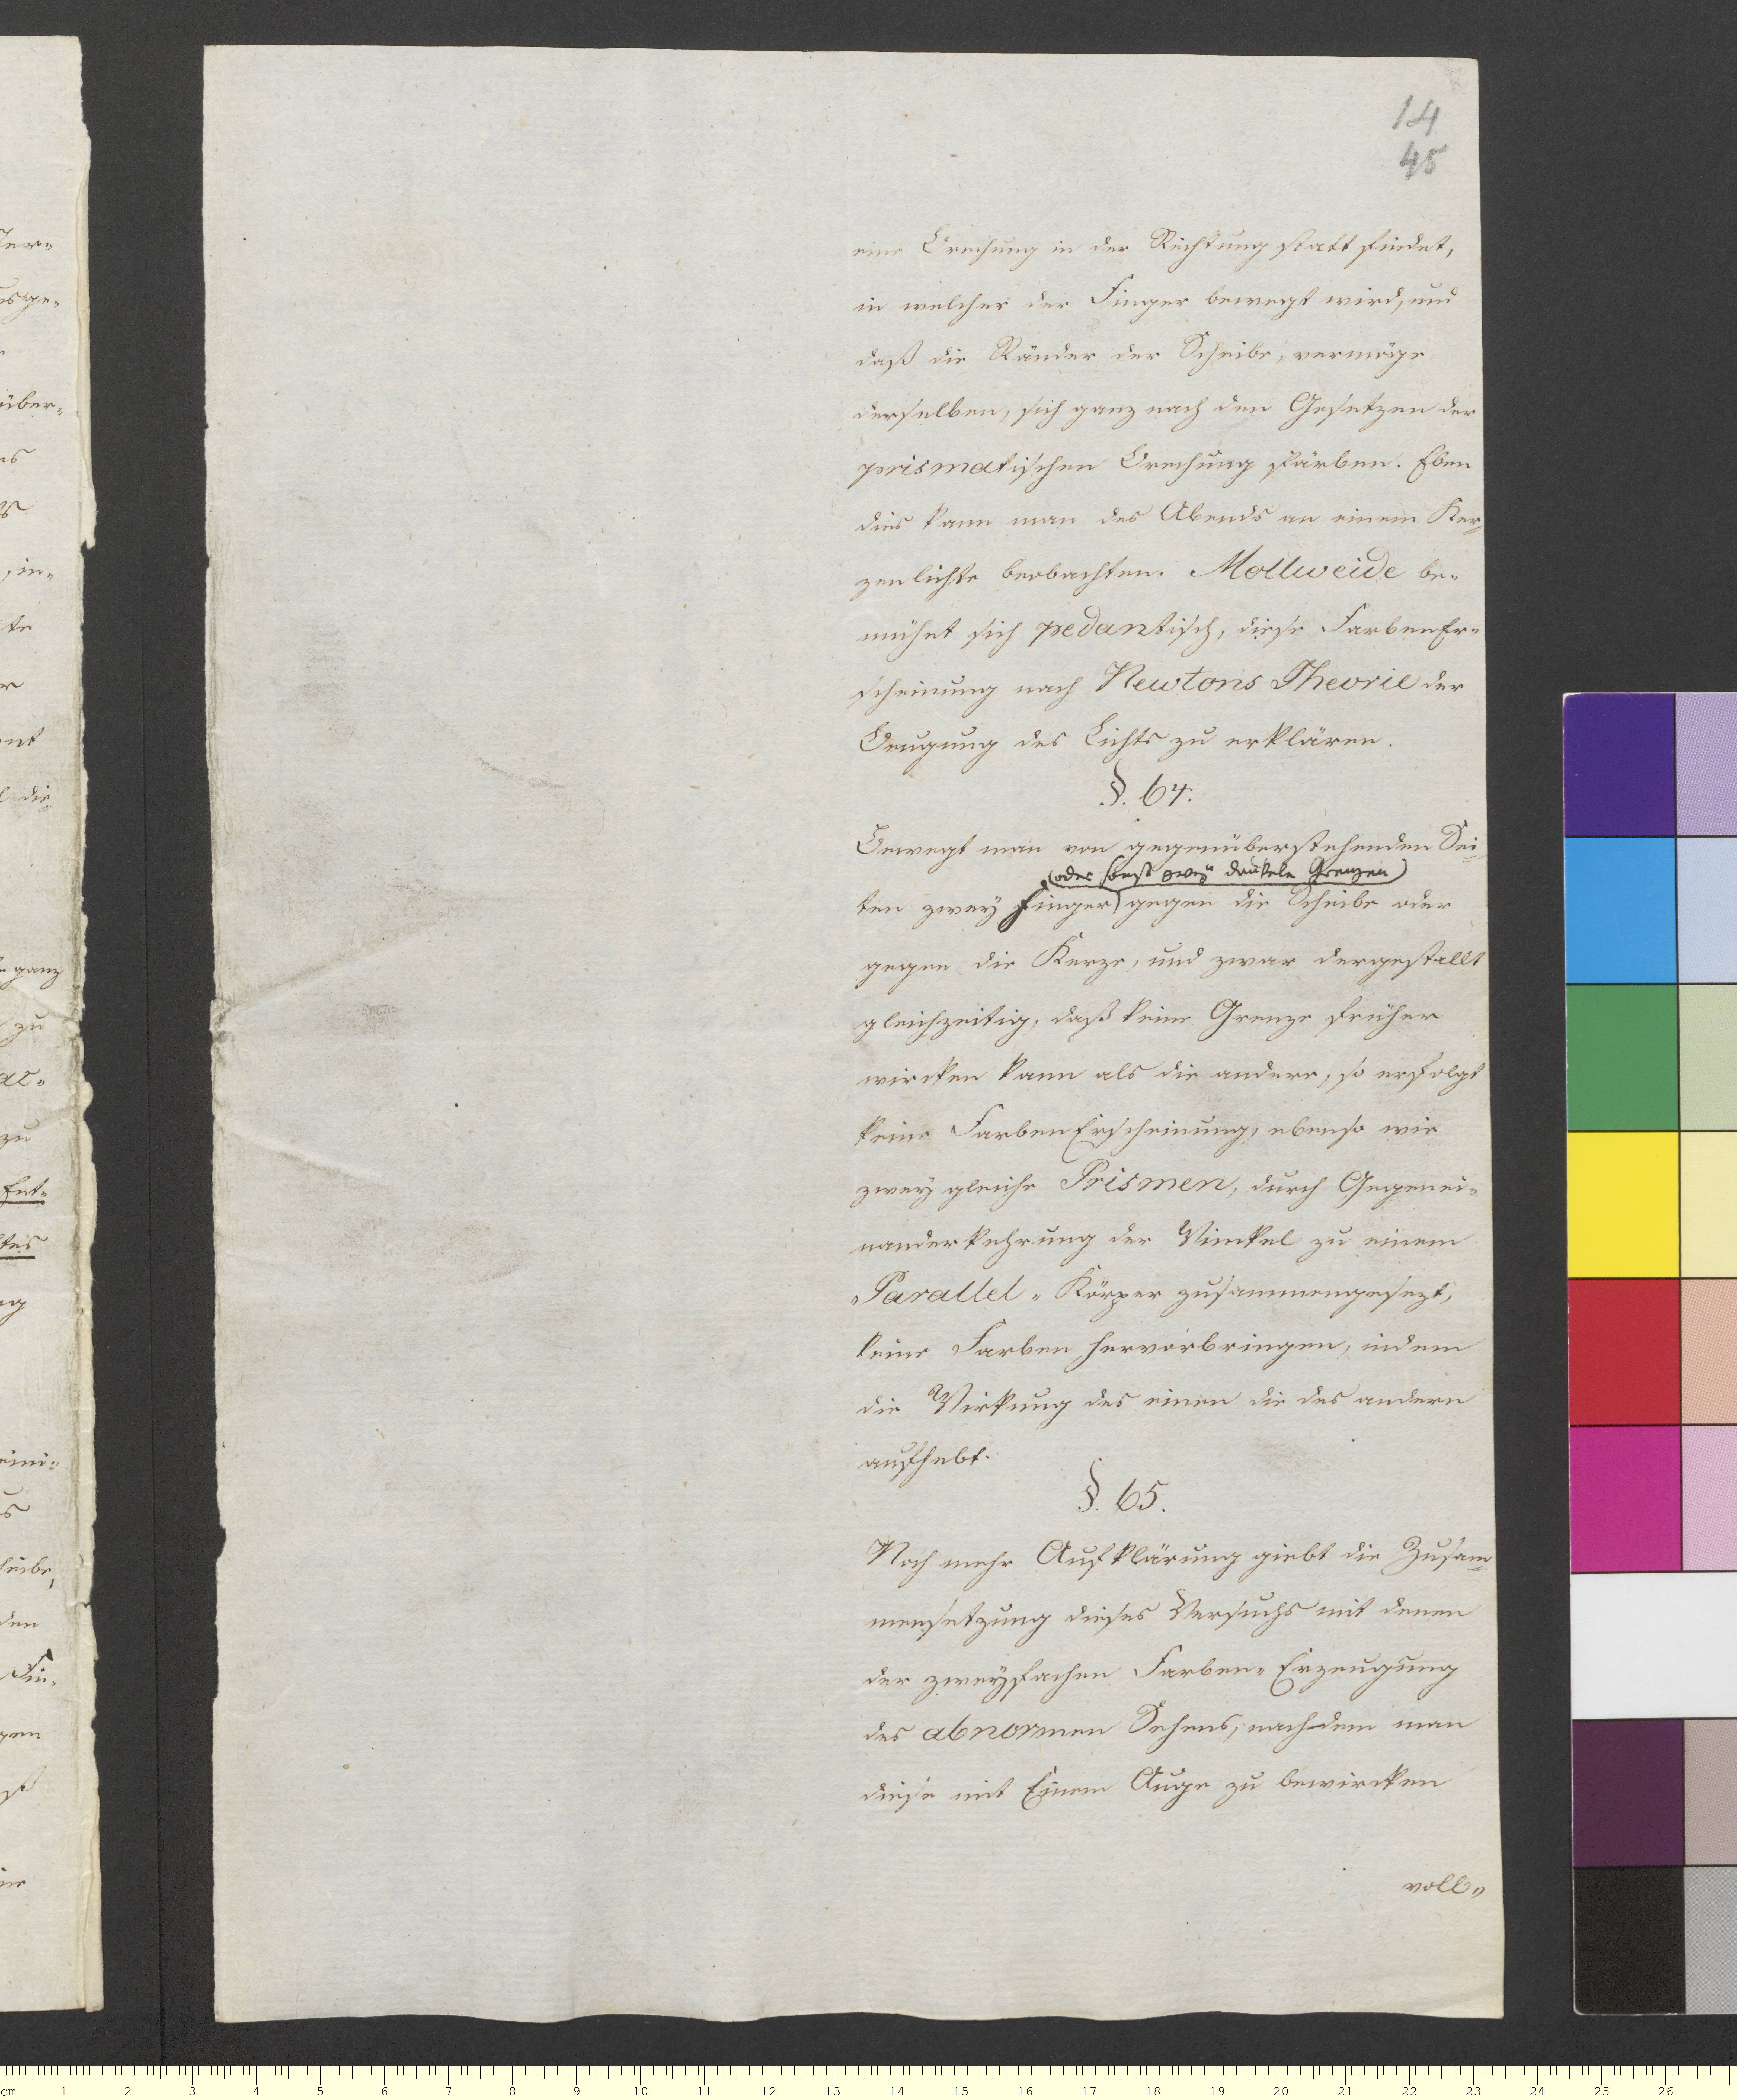 14
45
eine Brechung in der Richtung statt findet,
in welcher der Finger bewegt wird, und
daß die Ränder der Scheibe, vermöge
derselben, sich ganz nach den Gesetzen der
prismatischen Brechung färben. Eben
dies kann man des Abends an einem Ker=
zenlichte beobachten. Mollweide be=
mühet sich pedantisch, diese FarbenEr=
scheinung nach Newtons Theorie der
Beugung des Lichts zu erklären.
§. 64.
Bewegt man von gegenüberstehenden Sei=
(oder sonst zwey dunkele Grenzen)
ten zwey Finger gegen die Scheibe oder
gegen die Kerze, und zwar dergestallt
gleichzeitig, daß keine Grenze früher
wircken kann als die andere, so erfolgt
keine FarbenErscheinung, ebenso wie
zwey gleiche Prismen, durch Gegenei=
nanderkehrung der Winkel zu einem
Parallel=Körper zusammengesezt,
keine Farben hervorbringen, indem
die Wirkung des einen die des andern
aufhebt.
§. 65.
Noch mehr Aufklärung giebt die Zusam=
mensetzung dieses Versuchs mit denen
der zweyfachen Farben=Erzeugung
des abnormen Sehens, nachdem man
diese mit Einem Auge zu bewircken
voll=
ganz
zu
zu
Ent=
den
cm 1 2 3 4 5 6 7 8 9 10 11 12 13 14 15 16 17 18 19 20 21 22 23 24 25 26